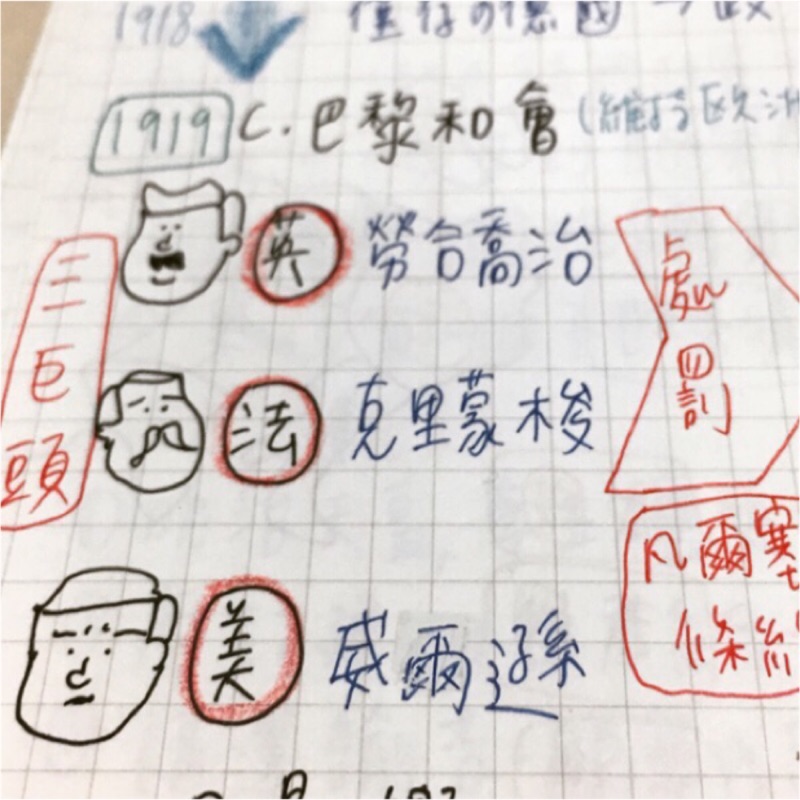 1918 僅存的德國
1919 C. 巴黎和會 (維持歐洲
三巨頭
英 勞合喬治
法 克里蒙梭
美 威爾遜
處罰
凡爾塞
條約